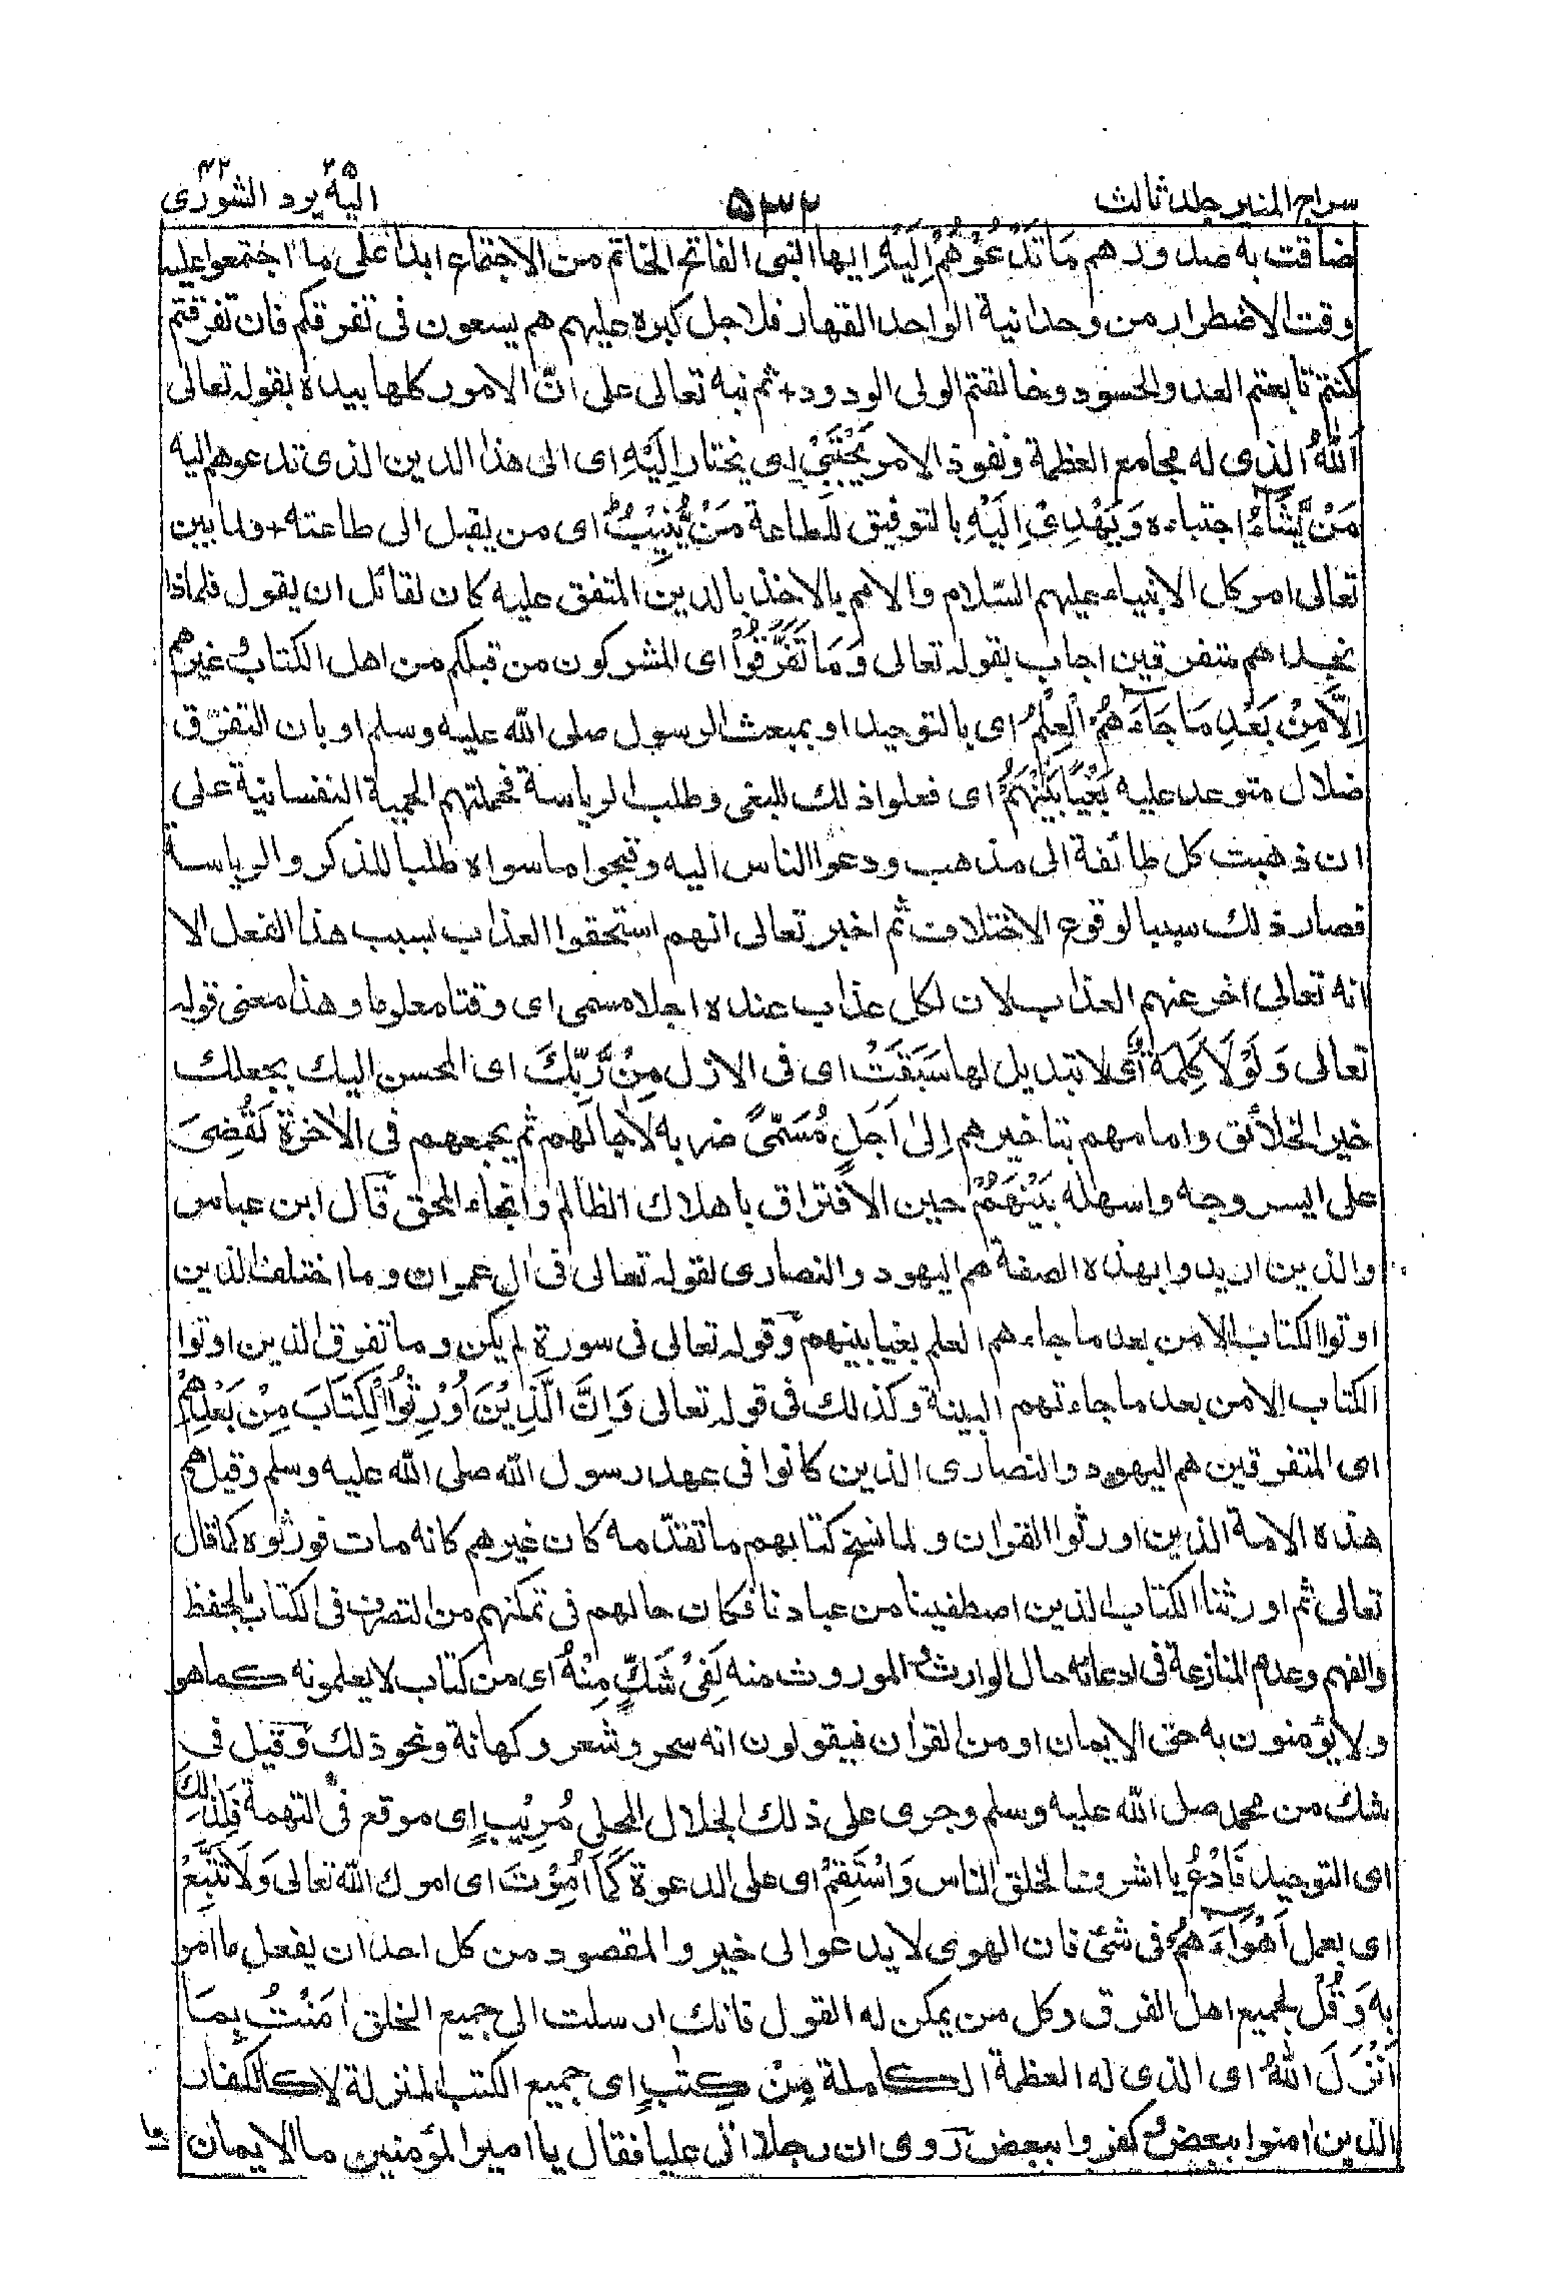 سراج المنير جلد ثالث
۵۳۲
اليه يرد ۲۵ الشورى ۴۲
ضاقت به صدورهم مَا تَدْعُوْهُمْ اِلَيْهِ ايها النبى الفاتح الخاتم من الاجتماع ابدا على ما اجتمعوا عليه
وقت الاضطرار من وحدانية الواحد القهار فلاجل كبره عليهم هم يسعون فى تفرقكم فان تفرقتم
كنتم تابعتم العدو الحسود وخالفتم الولى الودود+ ثم نبه تعالى على انّ الامور كلها بيده بقوله تعالى
اَللّٰهُ الذى له مجامع العظمة ونفوذ الامر يَجْتَبِيْ اى يختار اِلَيْهِ اى الى هذا الدين الذى تدعوهم اليه
مَنْ يَّشَآءُ اجتباءه وَيَهْدِيْ اِلَيْهِ بالتوفيق للطاعة مَنْ يُّنِيْبُ اى من يقبل الى طاعته+ ولما بين
تعالى امر كل الانبياء عليهم السّلام والامم بالاخذ بالدين المتفق عليه كان لقائل ان يقول فلماذا
نجدهم متفرقين اجاب بقوله تعالى وَمَا تَفَرَّقُوْا اى المشركون من قبلكم من اهل الكتاب وغيرهم
اِلَّا مِنْ بَعْدِ مَا جَآءَهُمُ الْعِلْمُ اى بالتوحيد او بمبعث الرسول صلى الله عليه وسلم او بان التفرّق
ضلال متوعد عليه بَغْيًا بَيْنَهُمْ اى فعلوا ذلك للبغى وطلب الرياسة فحملتهم الحمية النفسانية على
ان ذهبت كل طائفة الى مذهب ودعوا الناس اليه وقبحوا ما سواه طلبا للذكر والرياسة
فصار ذلك سببا لوقوع الاختلاف ثم اخبر تعالى انهم استحقوا العذاب بسبب هذا الفعل الا
انه تعالى اخر عنهم العذاب لان لكل عذاب عنده اجلا مسمى اى وقتا معلوما وهذا معنى قوله
تعالى وَلَوْلَا كَلِمَةٌ اى لا تبديل لها سَبَقَتْ اى فى الازل مِنْ رَّبِّكَ اى المحسن اليك بجعلك
خير الخلائق وامامهم بتاخيرهم اِلٰى اَجَلٍ مُّسَمًّى ضربه لاٰجالهم ثم يجمعهم فى الاٰخرة لَقُضِىَ
على ايسر وجه واسهله بَيْنَهُمْ حين الافتراق باهلاك الظالم وانجاء المحق قال ابن عباس
والذين اريدوا بهذه الصفة هم اليهود والنصارى لقوله تعالى فى اٰل عمران وما اختلف الذين
اوتوا الكتاب الا من بعد ما جاءهم العلم بغيا بينهم وقوله تعالى فى سورة لم يكن وما تفرق الذين اوتوا
الكتاب الا من بعد ما جاءتهم البينة وكذلك فى قوله تعالى وَاِنَّ الَّذِيْنَ اُوْرِثُوا الْكِتَابَ مِنْ بَعْدِهِمْ
اى المتفرقين هم اليهود والنصارى الذين كانوا فى عهد رسول الله صلى الله عليه وسلم وقيل هم
هذه الامة الذين اورثوا القراٰن ولما نسخ كتابهم ما تقدّمه كان غيرهم كانه مات فورثوه كما قال
تعالى ثم اورثنا الكتاب الذين اصطفينا من عبادنا فكان حالهم فى تمكنهم من التصرف فى الكتاب بالحفظ
والفهم وعدم المنازعة فى ادعائه حال الوارث والموروث منه لَفِيْ شَكٍّ مِّنْهُ اى من كتاب لا يعلمونه كما هو
ولا يؤمنون به حق الايمان او من القراٰن فيقولون انه سحر وشعر وكهانة ونحو ذلك وقيل فى
شك من محمد صلى الله عليه وسلم وجرى على ذلك الجلال المحلى مُرِيْبٍ اى موقع فى التهمة فَلِذٰلِكَ
اى التوحيد فَادْعُ يا اشرف الخلق الناس وَاسْتَقِمْ اى على الدعوة كَمَآ اُمِرْتَ اى امرك الله تعالى وَلَا تَتَّبِعْ
اى بعمل اَهْوَآءَهُمْ فى شئ فان الهوى لا يدعو الى خير والمقصود من كل احد ان يفعل ما امر
به وَقُلْ لجميع اهل الفرق وكل من يمكن له القول فانك ارسلت الى جميع الخلق اٰمَنْتُ بِمَآ
اَنْزَلَ اللّٰهُ اى الذى له العظمة الكاملة مِنْ كِتٰبٍ اى جميع الكتب المنزلة لا كالكفار
الذين اٰمنوا ببعض وكفروا ببعض روى ان رجلا اتى عليا فقال يا امير المؤمنين ما الايمان